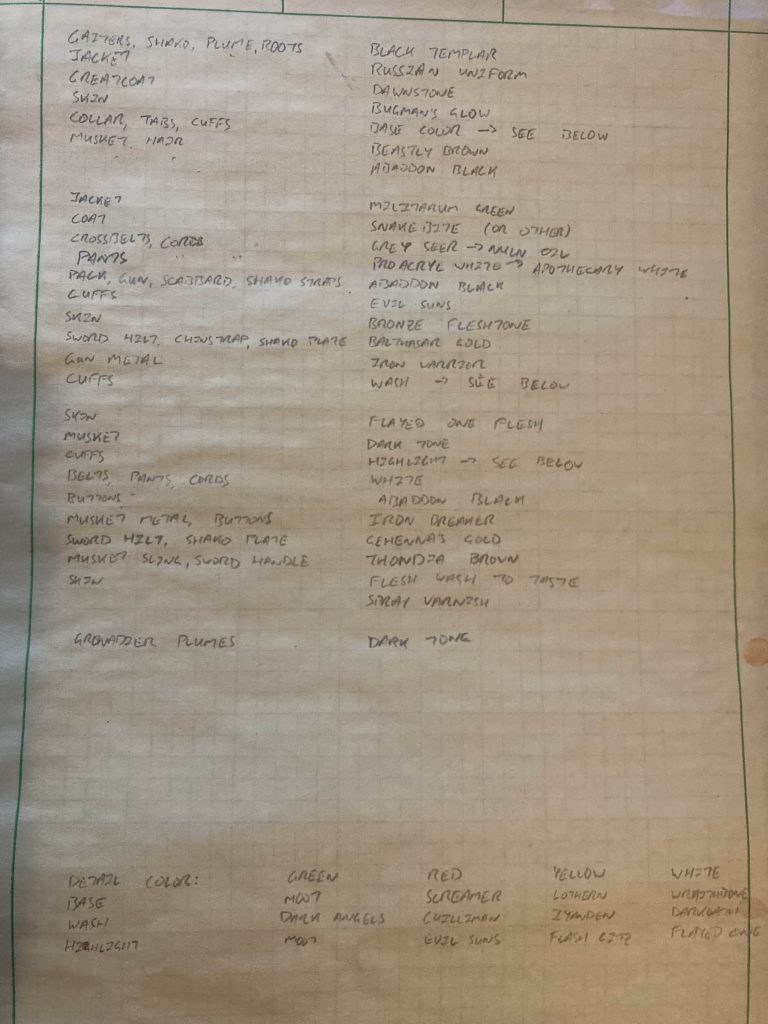 GAITERS, SHAKO, PLUME, BOOTS BLACK TEMPLAR
JACKET RUSSIAN UNIFORM
GREATCOAT DAWNSTONE
SKIN BUGMAN'S GLOW
COLLAR, TABS, CUFFS BASE COLOR → SEE BELOW
MUSKET, HAIR BEASTLY BROWN
" " ABADDON BLACK
JACKET MILITARUM GREEN
COAT SNAKEBITE (OR OTHER)
CROSSBELTS, CORDS GREY SEER → NULN OIL
PANTS " PROACRYL WHITE → APOTHECARY WHITE
PACK, GUN, SCABBARD, SHAKO STRAPS ABADDON BLACK
CUFFS EVIL SUNS
SKIN BRONZE FLESHTONE
SWORD HILT, CHINSTRAP, SHAKO PLATE BALTHASAR GOLD
GUN METAL IRON WARRIOR
CUFFS WASH → SEE BELOW
SKIN FLAYED ONE FLESH
MUSKET DARK TONE
CUFFS HIGHLIGHT → SEE BELOW
BELTS, PANTS, CORDS WHITE
BUTTONS ABADDON BLACK
MUSKET METAL, BUTTONS IRON BREAKER
SWORD HILT, SHAKO PLATE GEHENNA'S GOLD
MUSKET SLING, SWORD HANDLE THONDIA BROWN
SKIN FLESH WASH TO TASTE
SPRAY VARNISH
GRENADIER PLUMES DARK TONE
DETAIL COLOR: GREEN RED YELLOW WHITE
BASE MOOT SCREAMER LOTHERN WRAITHBONE
WASH DARK ANGELS GUILLIMAN IYANDEN DARKOATH
HIGHLIGHT MOOT EVIL SUNS FLASH GITZ FLAYED ONE